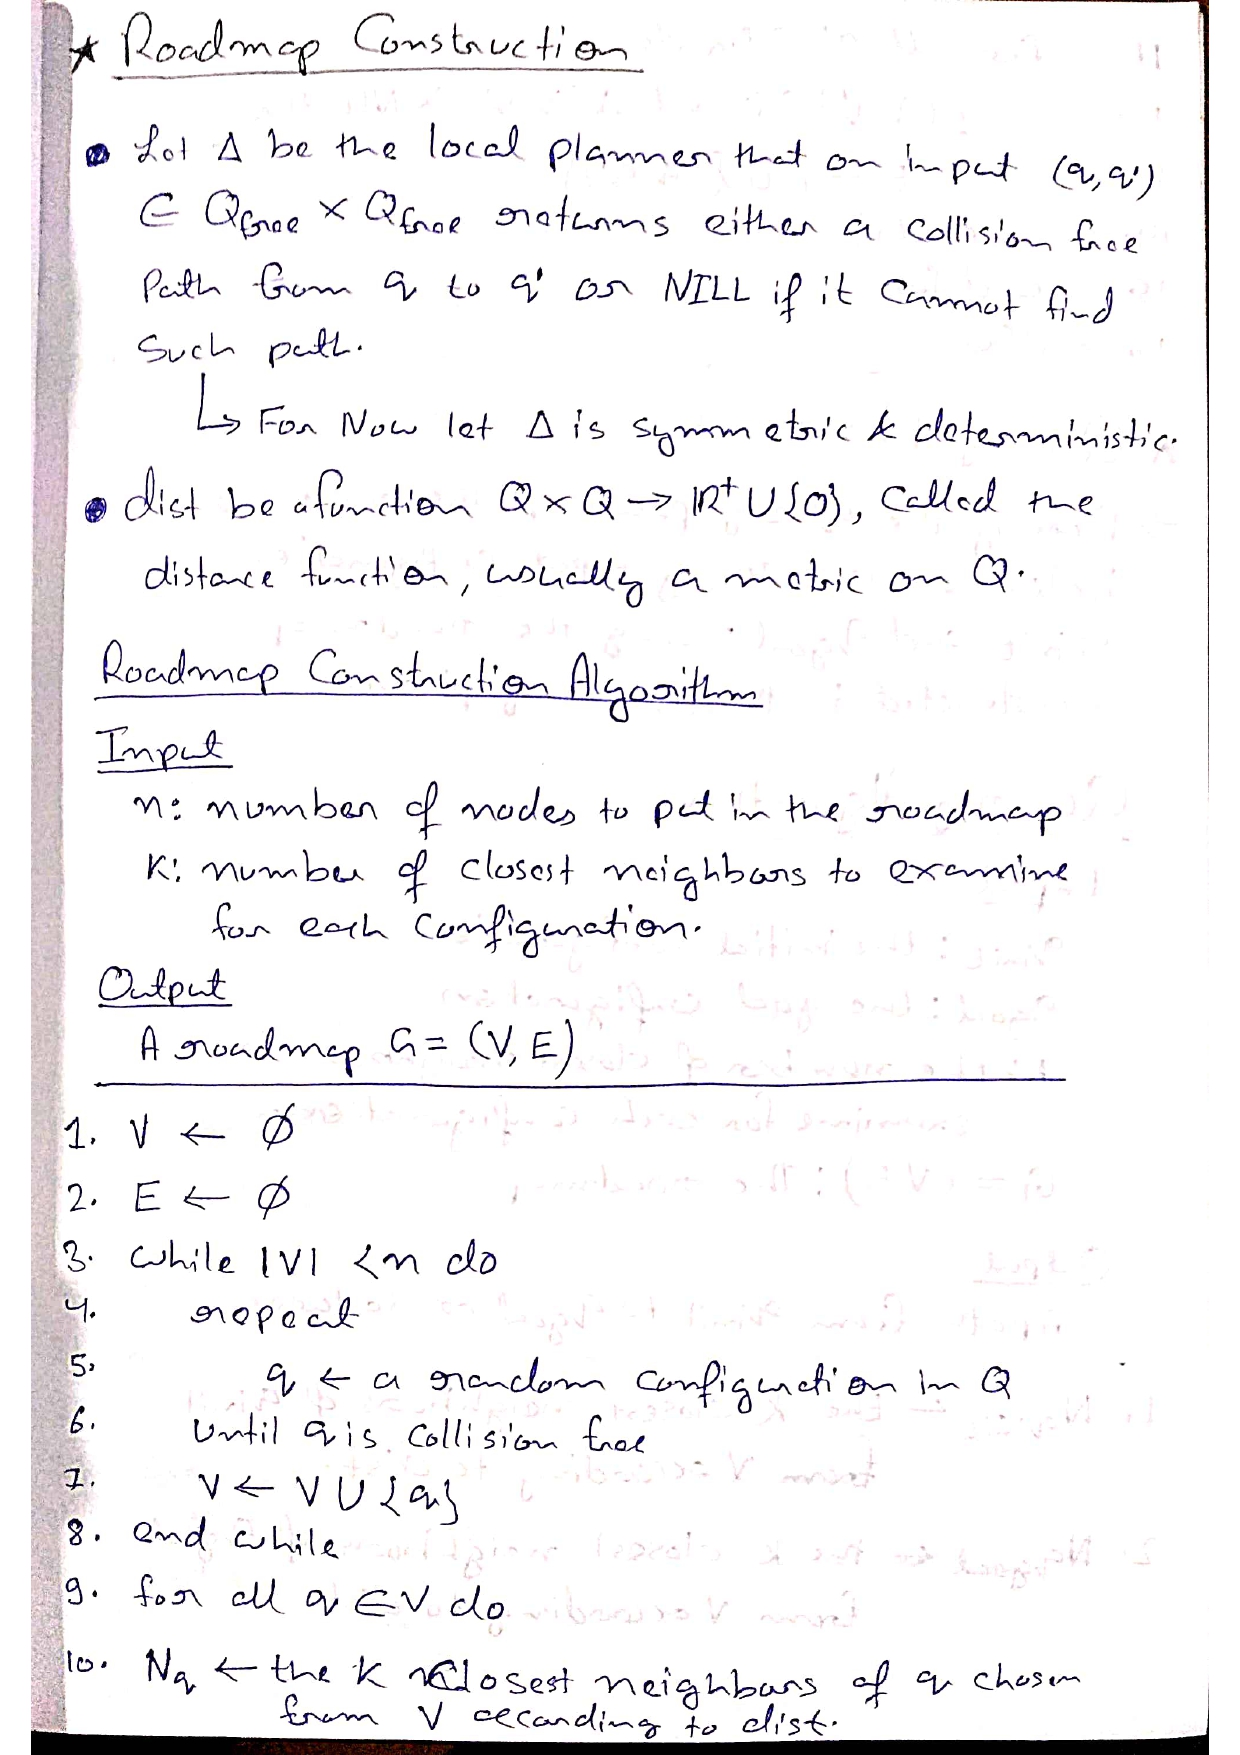 ★ Roadmap Construction
• Let Δ be the local planner that on input (q, q')
∈ Qfree × Qfree returns either a collision free
Path from q to q' or NILL if it cannot find
Such path.
↳ For Now let Δ is symmetric & deterministic.
• dist be a function Q × Q → ℝ⁺ ∪ {0}, Called the
distance function, usually a metric on Q.
Roadmap Construction Algorithm
Input
n: number of nodes to put in the roadmap
K: number of closest neighbors to examine
for each configuration.
Output
A roadmap G = (V, E)
1. V ← ∅
2. E ← ∅
3. while |V| < n do
4. repeat
5. q ← a random configuration in Q
6. Until q is collision free
7. V ← V ∪ {q}
8. end while
9. for all q ∈ V do
10. Nq ← the K closest neighbors of q chosen
from V according to dist.